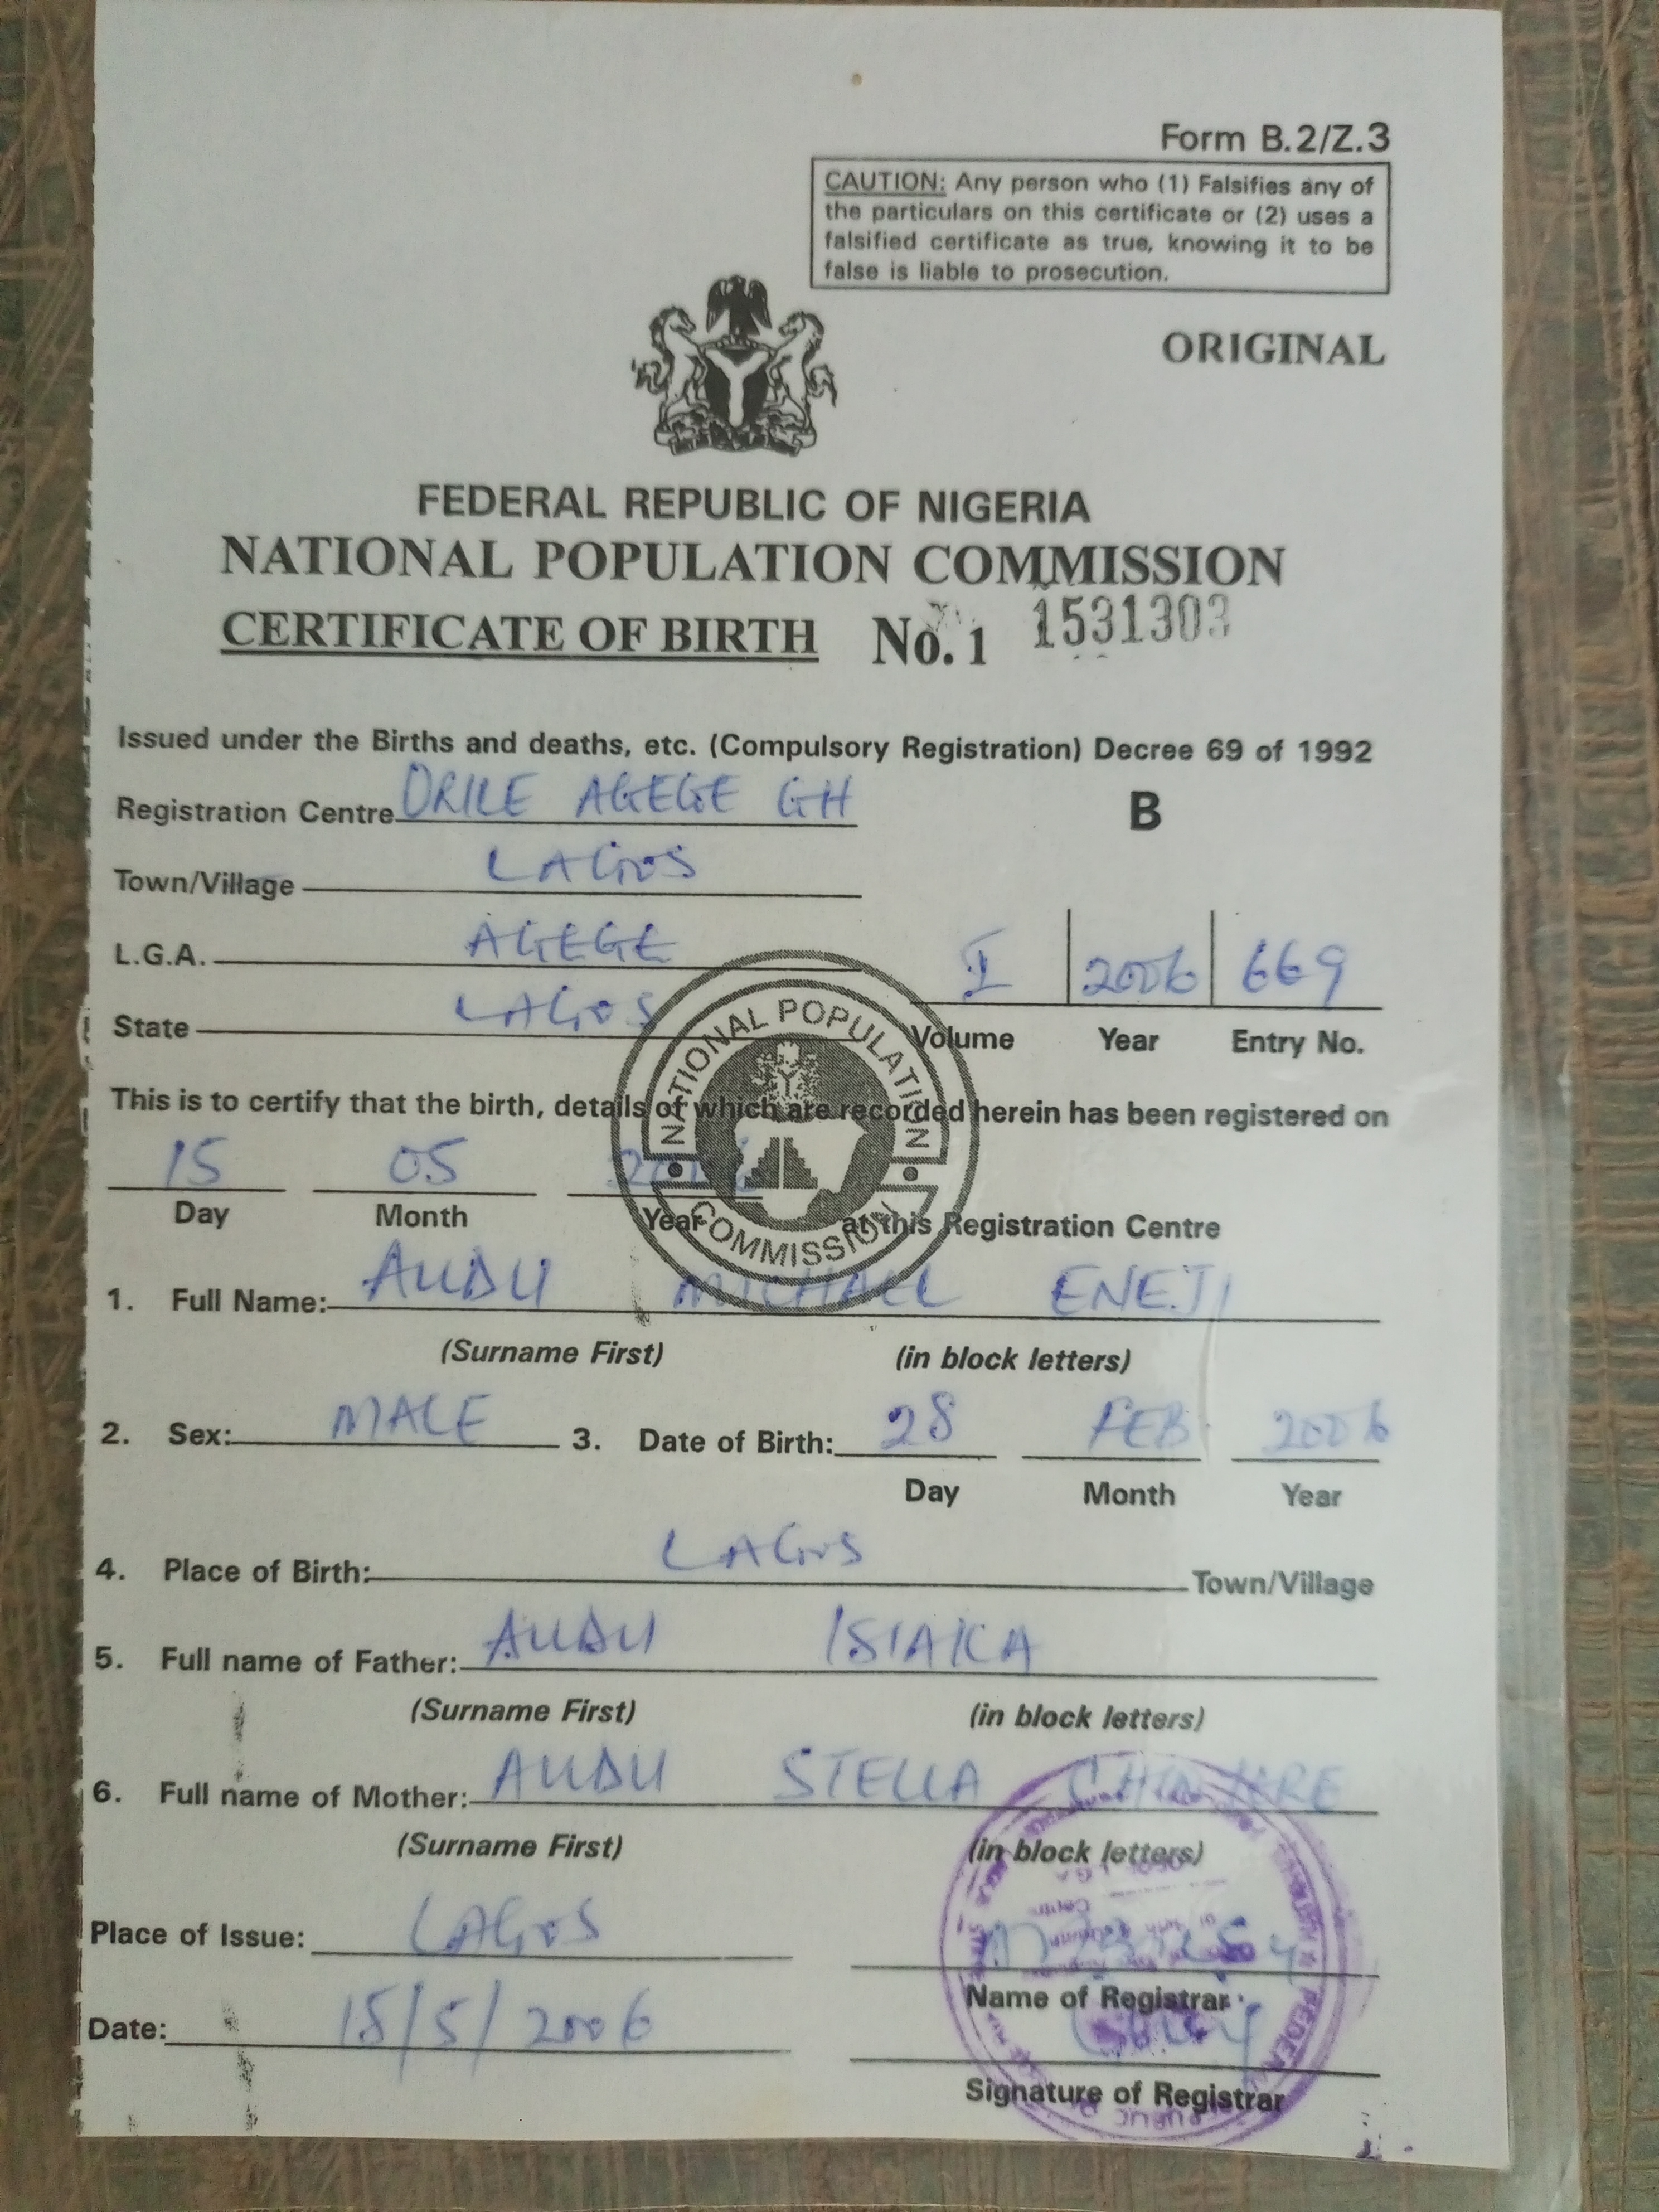 Form B.2/Z.3
CAUTION: Any person who (1) Falsifies any of
the particulars on this certificate or (2) uses a
falsified certificate as true, knowing it to be
false is liable to prosecution.
ORIGINAL
FEDERAL REPUBLIC OF NIGERIA
NATIONAL POPULATION COMMISSION
CERTIFICATE OF BIRTH No. 1 1531303
Issued under the Births and deaths, etc. (Compulsory Registration) Decree 69 of 1992
Registration Centre ORILE AGEGE GH B
Town/Village LAGOS
L.G.A. AGEGE
I 2006 669
State LAGOS
Volume Year Entry No.
NATIONAL POPULATION COMMISSION
This is to certify that the birth, details of which are recorded herein has been registered on
15 05 2006
Day Month Year at this Registration Centre
1. Full Name: AUDU MICHAEL ENEJI
(Surname First) (in block letters)
2. Sex: MALE 3. Date of Birth: 28 FEB 2006
Day Month Year
4. Place of Birth: LAGOS Town/Village
5. Full name of Father: AUDU ISIAKA
(Surname First) (in block letters)
6. Full name of Mother: AUDU STELLA
(Surname First) (in block letters)
Place of Issue: LAGOS
Name of Registrar
Date: 15/5/2006
Signature of Registrar